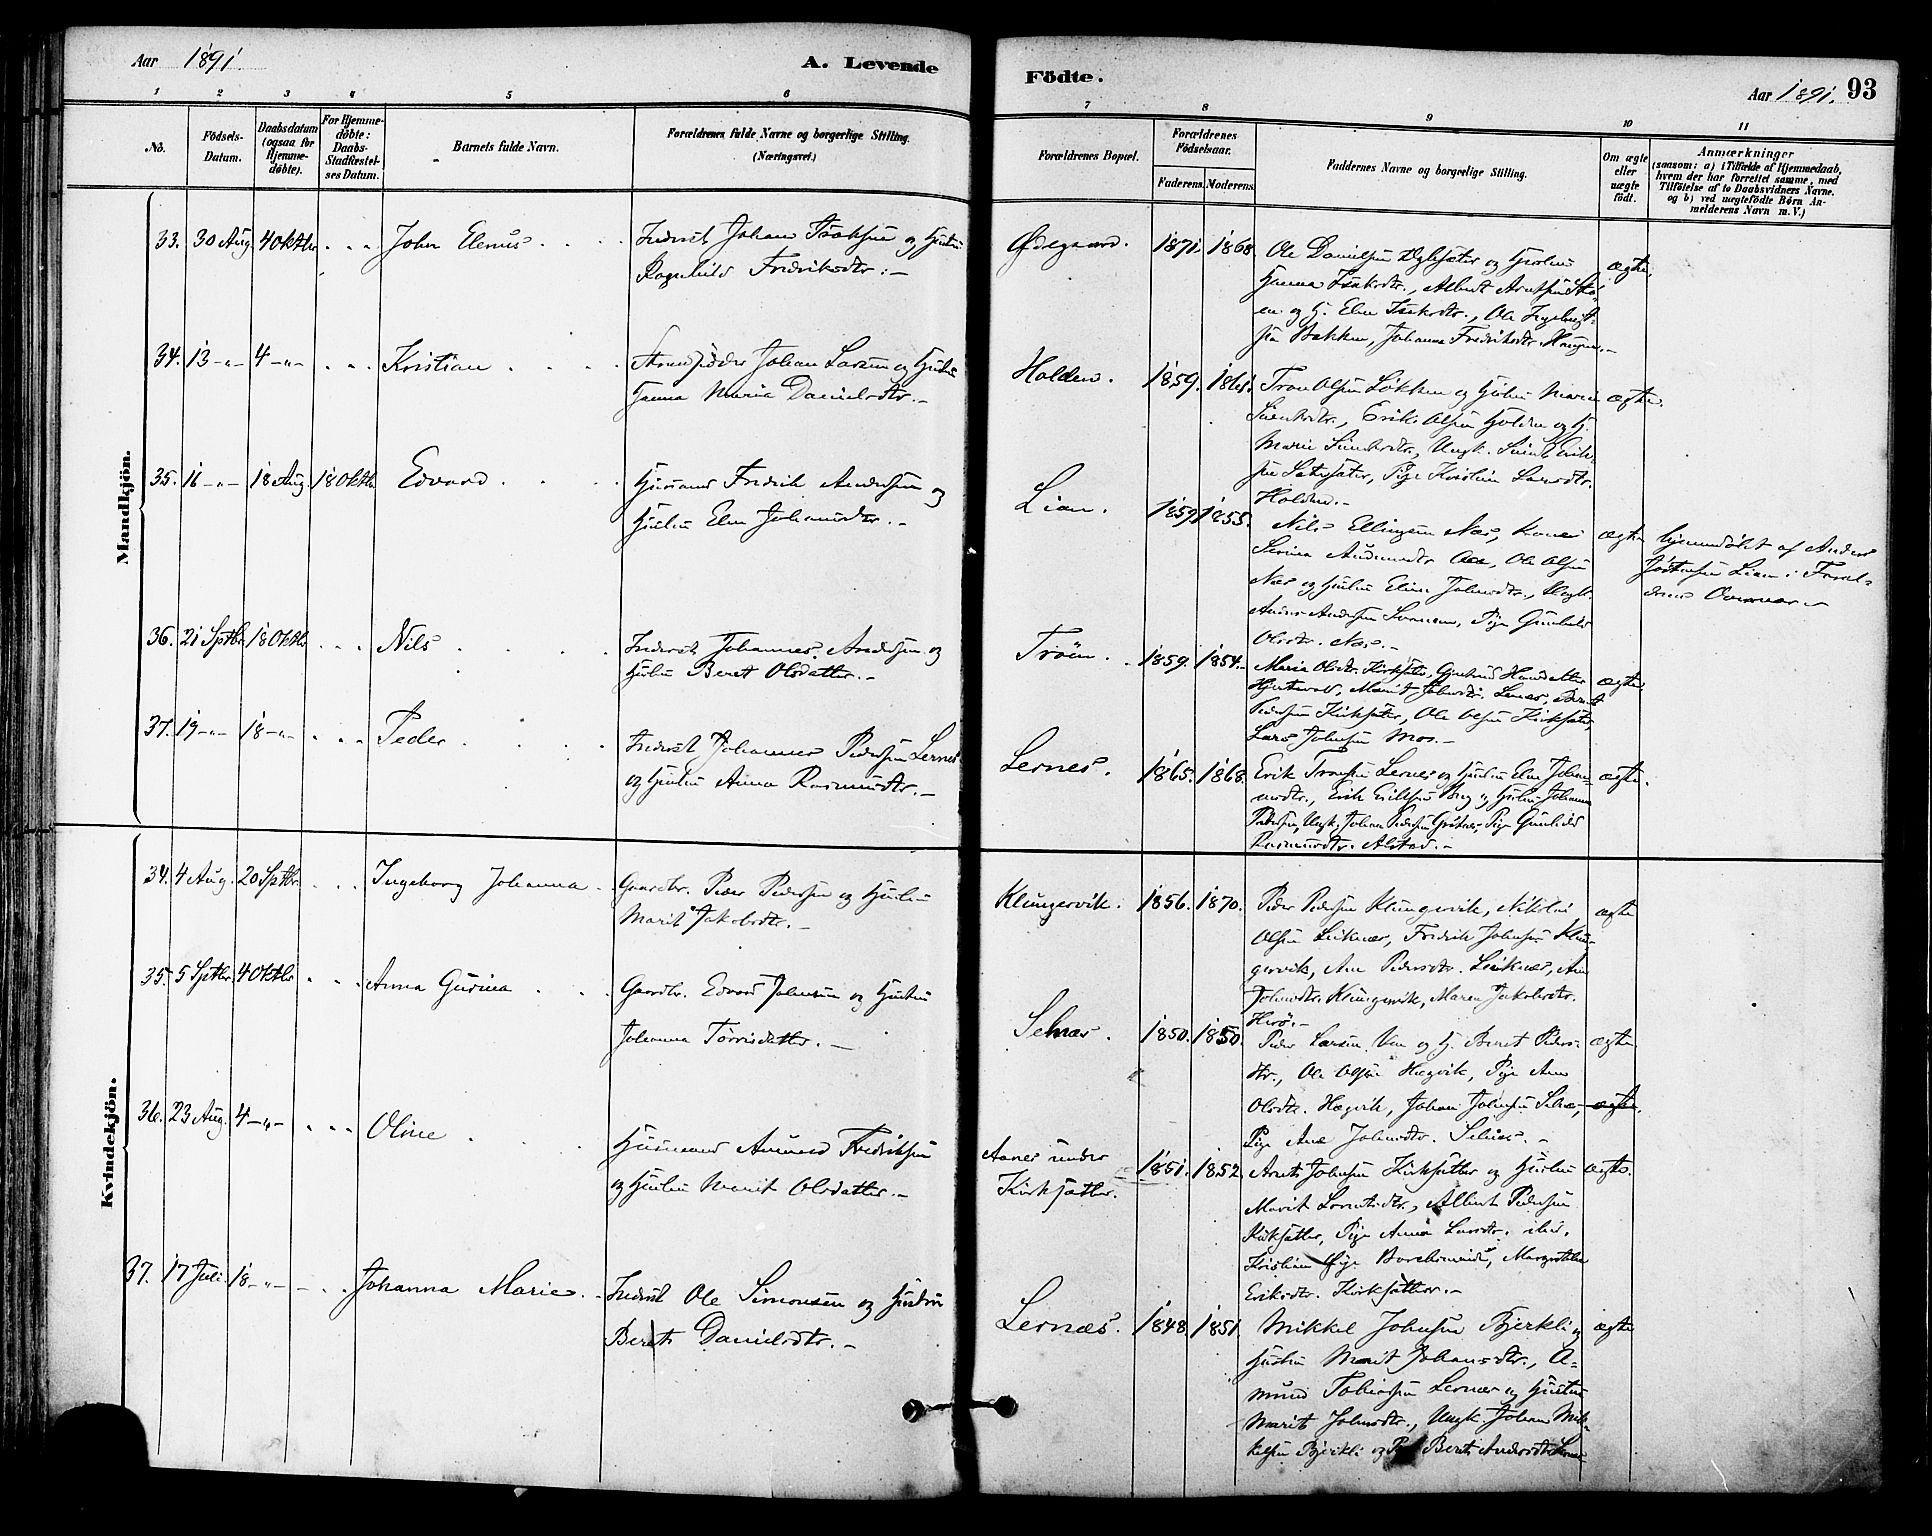 Aar 1891.
A. Levende
Födte.
Aar 1891. 93
1 2 3 4 5 6 7 8 9 10 11
No.
Födsels-Datum.
Daabsdatum (ogsaa for Hjemme-döbte).
For Hjemme-döbte: Daabs-Stadfæstel-ses Datum.
Barnets fulde Navn.
Forældrenes fulde Navne og borgerlige Stilling.
(Næringsvei.)
Forældrenes Bopæl.
Forældrenes Födselsaar.
Faderens. Moderens.
Faddernes Navne og borgerlige Stilling.
Om ægte eller uægte födt.
Anmærkninger
(saasom: a) i Tilfælde af Hjemmedaab,
hvem der har forrettet samme, med
Tilföielse af to Daabsvidners Navne.
og b) ved uægtefödte Börn An-
melderens Navn m. V.)
Mandkjön.
33. 30 Aug 4 Oktbr John Elenus
Inderst Johan Isaksen og Hustru
Ragnhild Fredriksdtr. -
Ödegaard. 1871. 1868.
Ole Danielsen
Hanna Isaksdtr., Albert Arntsen
en og H. Elen Isaksdtr., Ole Ingebrigt-
sen Bakken, Johanna Fredriksdtr. Haugen. -
ægte.
34. 13 -"- 4 -"- Kristian
Johan Larsen og Hustru
Hanna Maria Danielsdtr. -
Holden. 1859. 1861.
Tron Olsen Løkken og Hustru Marit
Erik Olsen Holden og H.
Marie
Pige Kristine Larsdtr.
Holden. -
ægte.
35. 16 -"- 18 Aug. 18 Oktbr Edvard
Husmand Fredrik Andersen og
Hustru Elen Johansdtr. -
Lian. 1859 1855.
Nils Ellingsen Næs, Kone
Ole Olsen
Næs og Hustru Elen Johnsdtr., Ungk.
Anders Andersen Svanem, Pige Gunhild
Olsdtr. Næs. -
ægte
hjemmedøbt af Anders
Lian i Foræl-
drenes Overvær -
36. 21 Sptbr 18 Oktbr Nils
Inderst Johannes Andersen og
Hustru Beret Olsdatter. -
Tröen. 1859. 1854. -
Maria Olsdtr. Kirksæter,
Marit Johnsdtr. Lernæs, Bernt
Pedersen Kirksæter, Ole Olsen Kirksæter,
Lars Johnsen Moe. -
ægte
37. 19 -"- 18 -"- Peder
Inderst Johannes Pedersen Lernes
og Hustru Anna Rasmusdtr. -
Lernes. 1865. 1868.
Erik Tronsen Lernes og Hustru Elen Johan-
nesdtr., Erik Eriksen Berg og Hustru Johanna
Pedersen, Ungk. Johan Pedersen Pige Gunhild
Rasmusdtr. Alstad. -
ægte.
Kvindekjön.
34. 4 Aug. 20 Sptbr. Ingeborg Johanna
Gaardbr. Peder Pedersen og Hustru
Marit Jakobsdtr. -
Klungervik. 1856. 1870.
Peder Pedersen Klungervik, Nikolai
Olsen Leiknæs, Fredrik Johnsen Klun-
gervik, Ane Pedersdtr. Leiknæs, Ane
Johnsdtr. Klungervik, Maren Jakobsdtr.
Herö. -
ægte
35. 5 Sptbr. 4 Oktbr Anna Gurina
Gaardbr. Edvard Johnsen og Hustru
Johanna Torrisdatter. -
Selnæs. 1850. 1850.
Peder Larsen Ven og H. Beret Peders-
dtr., Ole Olsen Hægvik, Pige Ane
Olsdtr. Hægvik, Johan Johnsen Selnæs,
Pige Ane Johnsdtr. Selnæs. -
ægte
ægte.
36. 23 Aug. 4 -"- Oline
Husmand Amund Fredriksen
og Hustru Marit Olsdatter. -
Aanes under
Kirksætter.
1851. 1852
Arnt Johnsen Kirksætter og Hustru
Marit Larsdtr., Albert Pedersen
Kirksætter, Pige Anna Larsdtr. ibid.
Kristian Øye Margrethe
Eriksdtr. Kirksætter. -
ægte.
37. 17 Juli 18 -"- Johanna Marie
Inderst Ole Simonsen og Hustru
Bereth Danielsdtr. -
Lernæs. 1848. 1851.
Mikkel Johnsen Bjerkli og
Hustru Marit Johansdtr., A-
mund Tobiassen Lernæs og Hustru
Marit Johnsdtr., Ungk. Johan Mik-
kelsen Bjerkli og Pige Bereth Andersdtr. Lernæs
ægte